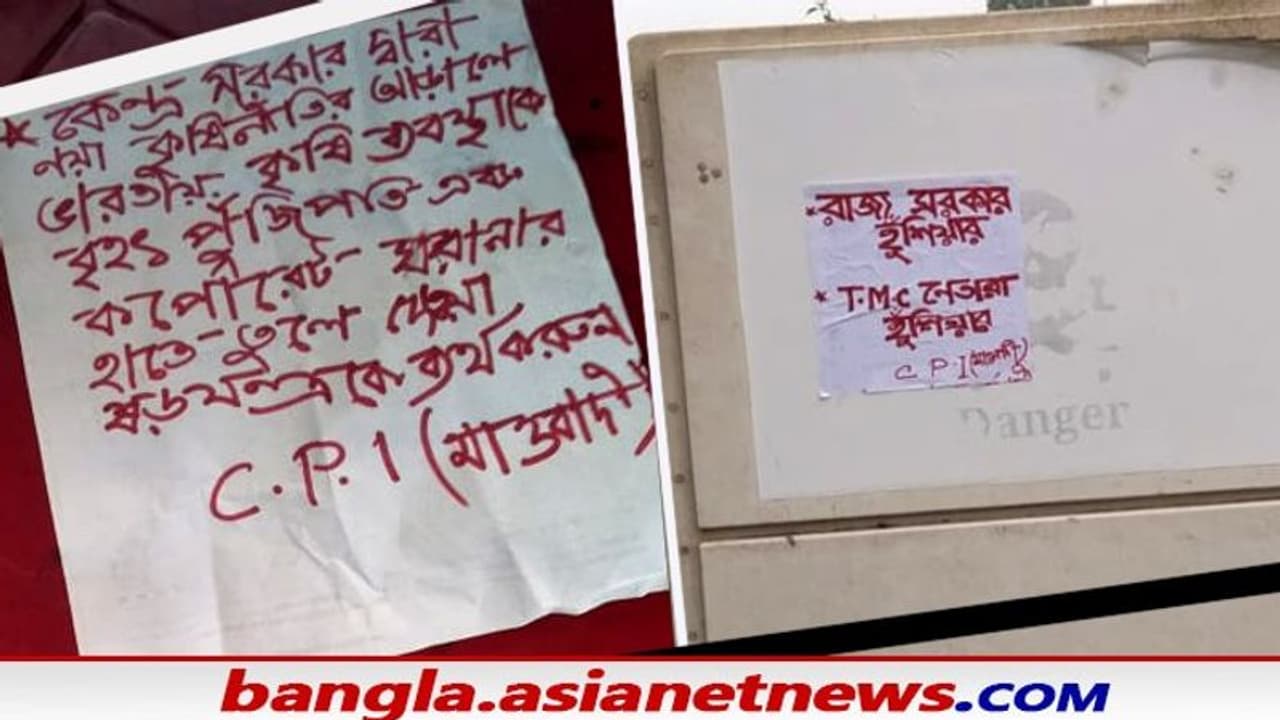 * কেন্দ্র সরকার দ্বারা
নয়া কৃষিনীতির আড়ালে
ভারতীয় কৃষি ব্যবস্থাকে
বৃহৎ পুঁজিপতি এবং
কর্পোরেট ঘরানার
হাতে তুলে দেয়া
ষড়যন্ত্রকে ব্যর্থ করুন
C.P.I (মাওবাদী)
* রাজ্য সরকার
হুঁশিয়ার
* T.M.C নেতারা
হুঁশিয়ার
C P I (মাওবাদী)
Danger
bangla.asianetnews.COM